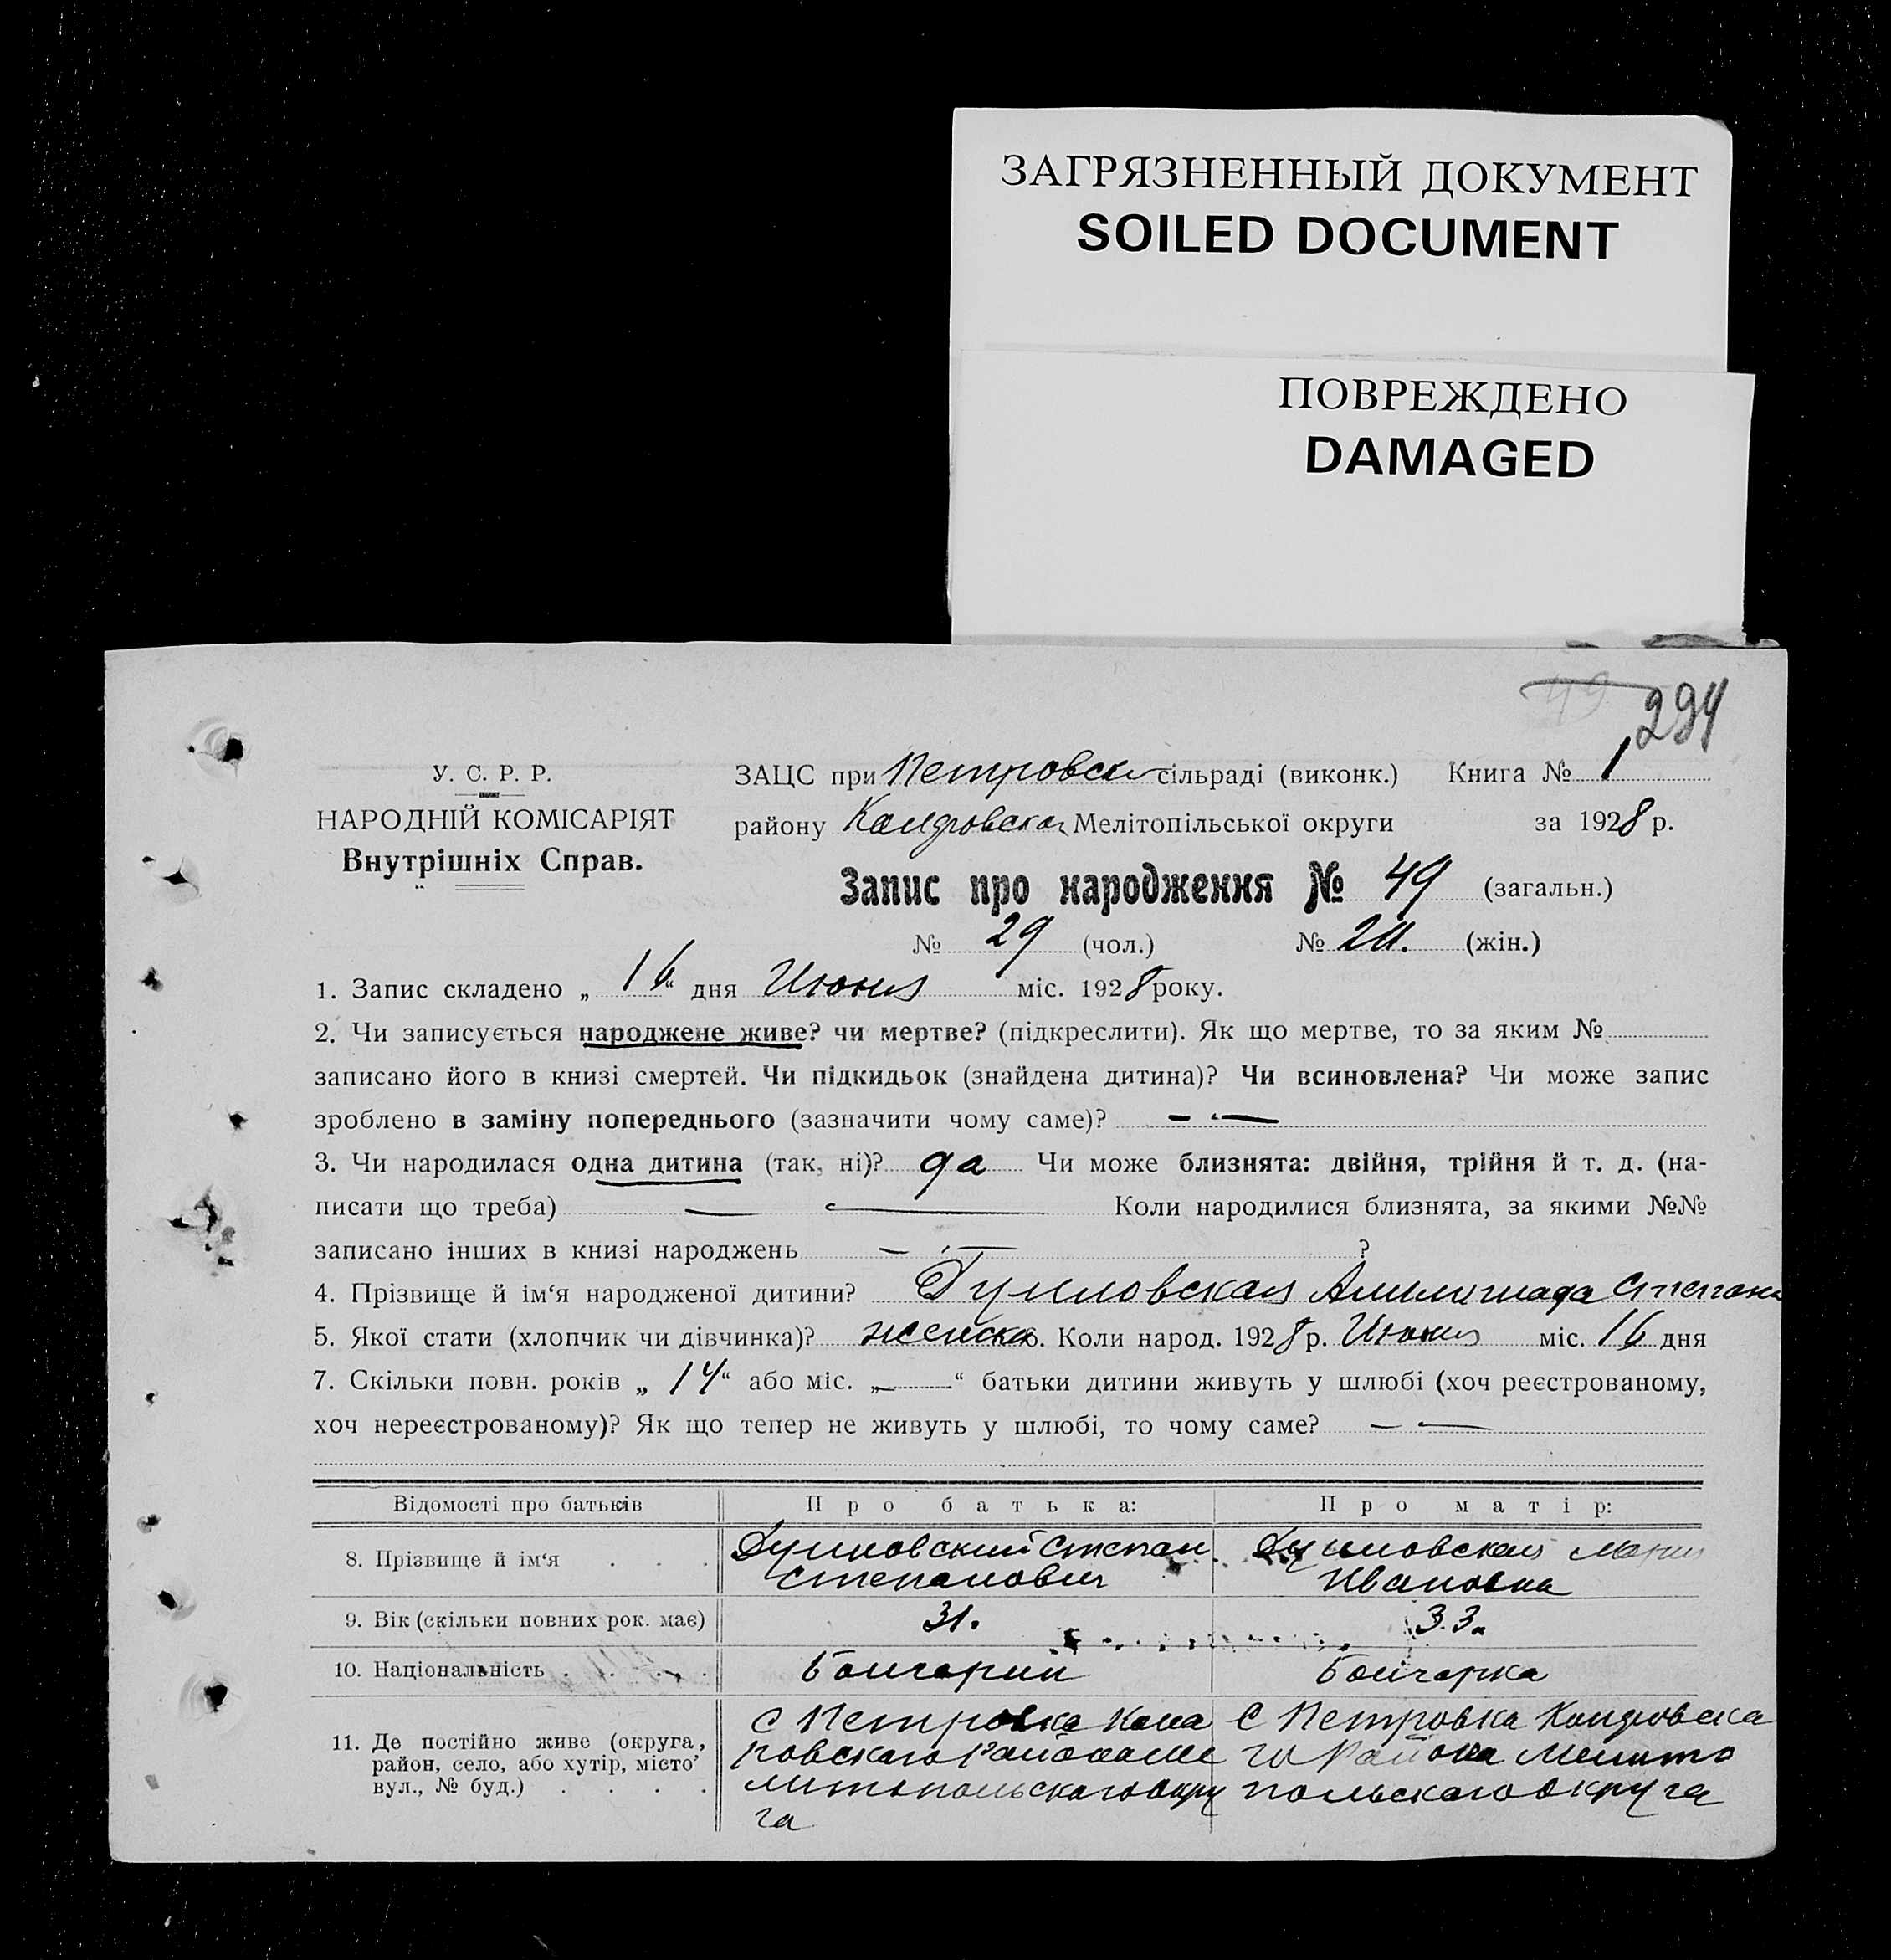 ЗАГРЯЗНЕННЫЙ ДОКУМЕНТ
SOILED DOCUMENT
ПОВРЕЖДЕНО
DAMAGED
49
294
У. С. Р. Р.
НАРОДНІЙ КОМІСАРІЯТ
Внутрішніх Справ.
ЗАЦС при Петровск сільраді (виконк.) Книга № 1
району Мелітопільської округи за 1928 р.
Запис про народження № 49 (загальн.)
№ 29 (чол.) № 20. (жін.)
1. Запис складено „ 16 “ дня Июня міс. 1928 року.
2. Чи записується народжене живе? чи мертве? (підкреслити). Як що мертве, то за яким №
записано його в книзі смертей. Чи підкидьок (знайдена дитина)? Чи всиновлена? Чи може запис
зроблено в заміну попереднього (зазначити чому саме)? — —
3. Чи народилася одна дитина (так, ні)? да Чи може близнята: двійня, трійня й т. д. (на-
писати що треба) — — Коли народилися близнята, за якими №№
записано інших в книзі народжень — — ?
4. Прізвище й ім‘я народженої дитини? Степан
5. Якої стати (хлопчик чи дівчинка)? женска 6. Коли народ. 1928 р. Июня міс. 16 дня
7. Скільки повн. років „ 14 “ або міс. „ — “ батьки дитини живуть у шлюбі (хоч реєстрованому,
хоч нереєстрованому)? Як що тепер не живуть у шлюбі, то чому саме? — —
Відомості про батьків Про батька: Про матір:
8. Прізвище й ім‘я . . . Степан Мария
Степанович Ивановна
9. Вік (скільки повних рок. має) 31. 33.
10. Національність . . . . Болгарин Болгарка
11. Де постійно живе (округа,
район, село, або хутір, місто
вул., № буд.) . . . .
с Петровка
ровскаго Района Ме
литопольскаго окру
га
с Петровка
го Района Мелито
польскаго округа